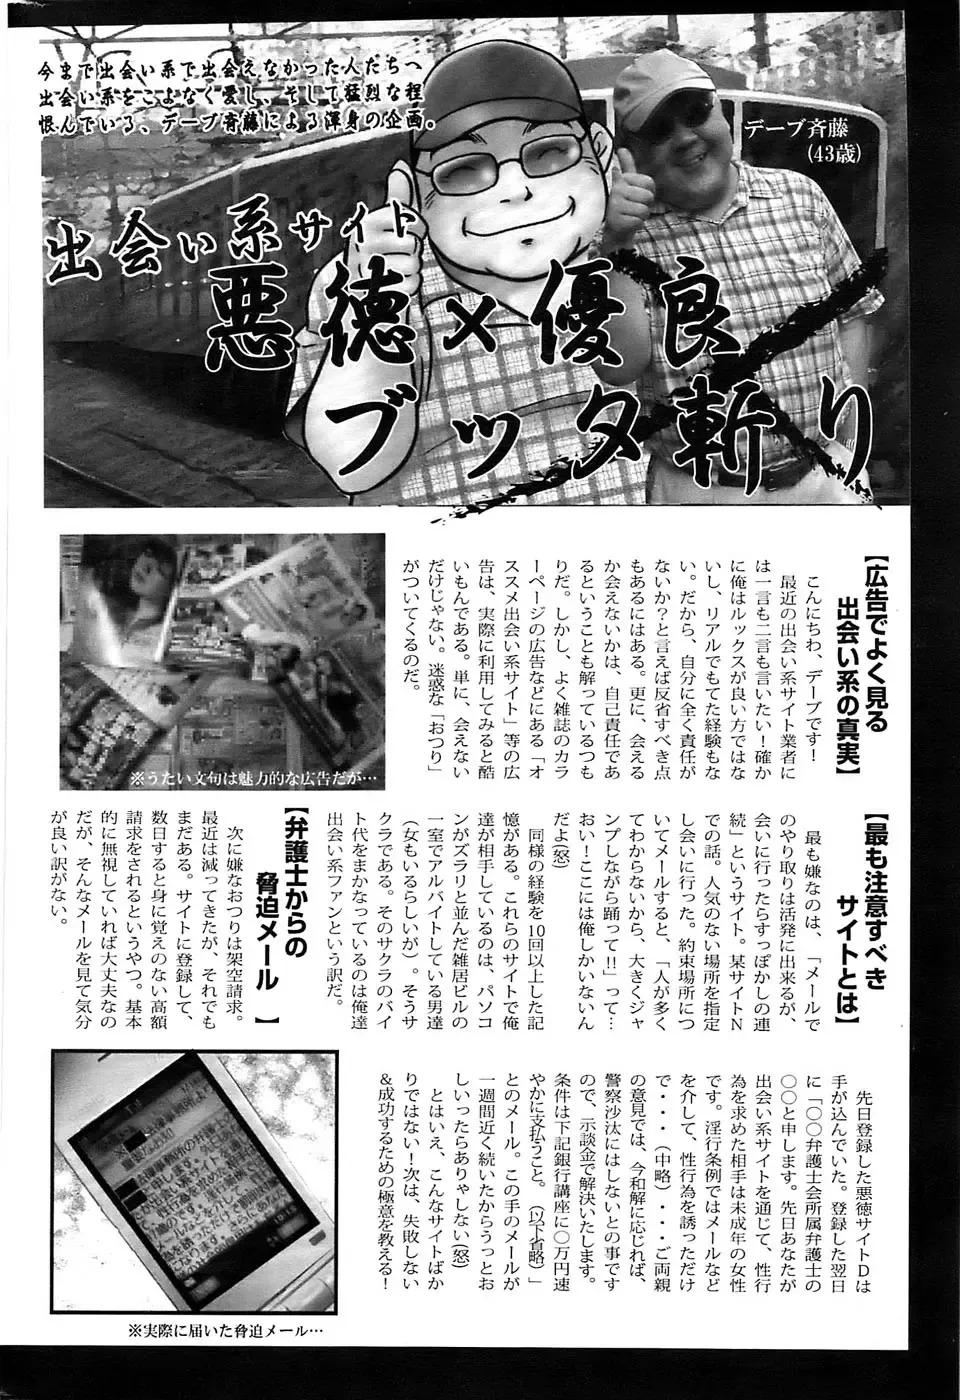 今まで出会い系で出会えなかった人たちへ
出会い系をこよなく愛し、そして猛烈な程
恨んでいる、デーブ斉藤による渾身の企画。
デーブ斉藤
(43歳)
出会い系サイト
悪徳×優良
ブッタ斬り
【広告でよく見る
出会い系の真実】
こんにちわ、デーブです!
最近の出会い系サイト業者に
は一言も二言も言いたい!確か
に俺はルックスが良い方ではな
いし、リアルでもてた経験もな
い。だから、自分に全く責任が
ないか?と言えば反省すべき点
もあるにはある。更に、会える
か会えないかは、自己責任であ
るということも解っているつも
りだ。しかし、よく雑誌のカラ
ーページの広告などにある「オ
ススメ出会い系サイト」等の広
告は、実際に利用してみると酷
いもんである。単に、会えない
だけじゃない。迷惑な「おつり」
がついてくるのだ。
※うたい文句は魅力的な広告だが…
【最も注意すべき
サイトとは】
最も嫌なのは、「メールで
のやり取りは活発に出来るが、
会いに行ったらすっぽかしの連
続」というサイト。某サイトN
での話。人気のない場所を指定
し会いに行った。約束場所につ
いてメールすると、「人が多く
てわからないから、大きくジャ
ンプしながら踊って!!」って…
おい!ここには俺しかいないん
だよ(怒)
同様の経験を10回以上した記
憶がある。これらのサイトで俺
達が相手しているのは、パソコ
ンがズラリと並んだ雑居ビルの
一室でアルバイトしている男達
(女もいるらしいが)。そうサ
クラである。そのサクラのバイ
ト代をまかなっているのは俺達
出会い系ファンという訳だ。
【弁護士からの
脅迫メール】
次に嫌なおつりは架空請求。
最近は減ってきたが、それでも
まだある。サイトに登録して、
数日すると身に覚えのない高額
請求をされるというやつ。基本
的に無視していれば大丈夫なの
だが、そんなメールを見て気分
が良い訳がない。
先日登録した悪徳サイトDは
手が込んでいた。登録した翌日
に「〇〇弁護士会所属弁護士の
〇〇と申します。先日あなたが
出会い系サイトを通じて、性行
為を求めた相手は未成年の女性
です。淫行条例ではメールなど
を介して、性行為を誘っただけ
で・・・(中略)・・・ご両親
の意見では、今和解に応じれば、
警察沙汰にはしないとの事です
ので、示談金で解決いたします。
条件は下記銀行講座に〇万円速
やかに支払うこと。(以下省略)」
とのメール。この手のメールが
一週間近く続いたからうっとお
しいったらありゃしない(怒)
とはいえ、こんなサイトばか
りではない!次は、失敗しない
&成功するための極意を教える!
※実際に届いた脅迫メール…